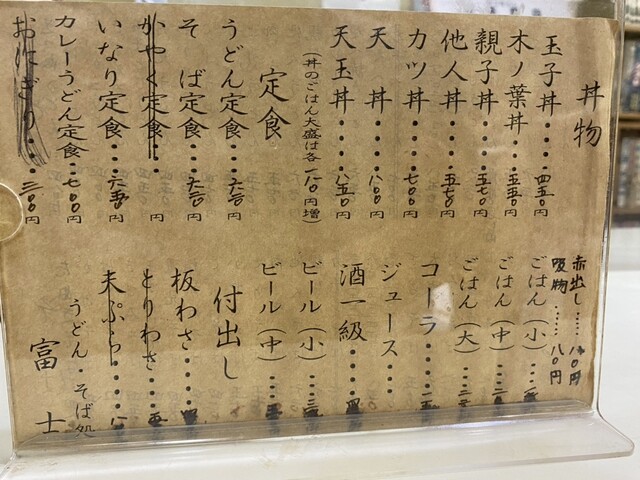 丼物
玉子丼・・・・四五〇円
木ノ葉丼・・・五五〇円
親子丼・・・・五七〇円
他人丼・・・・五七〇円
カツ丼・・・・七〇〇円
天丼・・・・八〇〇円
天玉丼・・・・八五〇円
(丼のごはん大盛は各一八〇円増)
定食
うどん定食・・・六五〇円
そば定食・・・六五〇円
かやく定食・・・円
いなり定食・・・六五〇円
カレーうどん定食・・・七〇〇円
おにぎり・・・三〇〇円
赤出し・・・・八〇円
吸物・・・・八〇円
ごはん(小)
ごはん(中)
ごはん(大)
コーラ
ジュース
酒一級
ビール(小)
ビール(中)
付出し
板わさ
とりわさ
天ぷら
うどん・そば処
富士